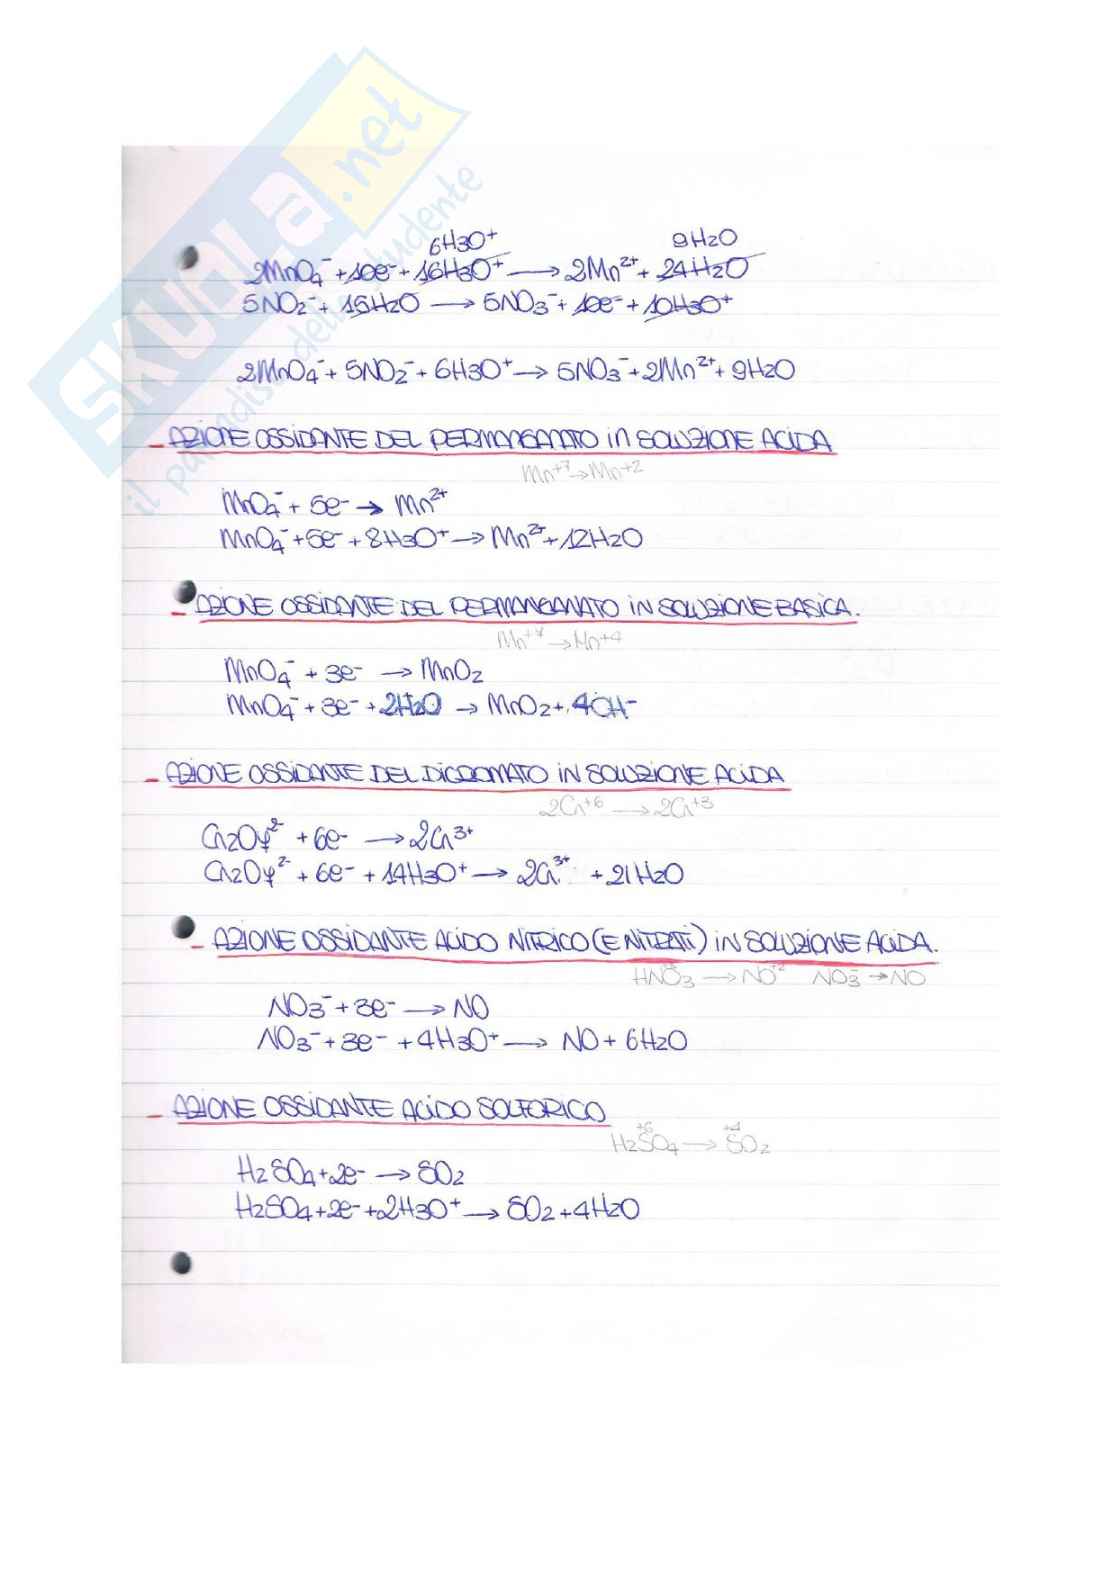 SKUOLA.net
il paradiso dello studente
6H3O+ 9H2O
2MnO4- + 10e- + 16H3O+ → 2Mn2+ + 24H2O
5NO2- + 15H2O → 5NO3- + 10e- + 10H3O+
2MnO4- + 5NO2- + 6H3O+ → 5NO3- + 2Mn2+ + 9H2O
- AZIONE OSSIDANTE DEL PERMANGANATO in SOLUZIONE ACIDA
Mn+7 → Mn+2
MnO4- + 5e- → Mn2+
MnO4- + 5e- + 8H3O+ → Mn2+ + 12H2O
- AZIONE OSSIDANTE DEL PERMANGANATO IN SOLUZIONE BASICA.
Mn+7 → Mn+4
MnO4- + 3e- → MnO2
MnO4- + 3e- + 2H2O → MnO2 + 4OH-
- AZIONE OSSIDANTE DEL DICROMATO IN SOLUZIONE ACIDA
2Cr+6 → 2Cr+3
Cr2O7 2- + 6e- → 2Cr3+
Cr2O7 2- + 6e- + 14H3O+ → 2Cr3+ + 21H2O
- AZIONE OSSIDANTE ACIDO NITRICO (E NITRATI) IN SOLUZIONE ACIDA.
HNO3 → NO+2 NO3- → NO
NO3- + 3e- → NO
NO3- + 3e- + 4H3O+ → NO + 6H2O
- AZIONE OSSIDANTE ACIDO SOLFORICO
+6 +4
H2SO4 → SO2
H2SO4 + 2e- → SO2
H2SO4 + 2e- + 2H3O+ → SO2 + 4H2O